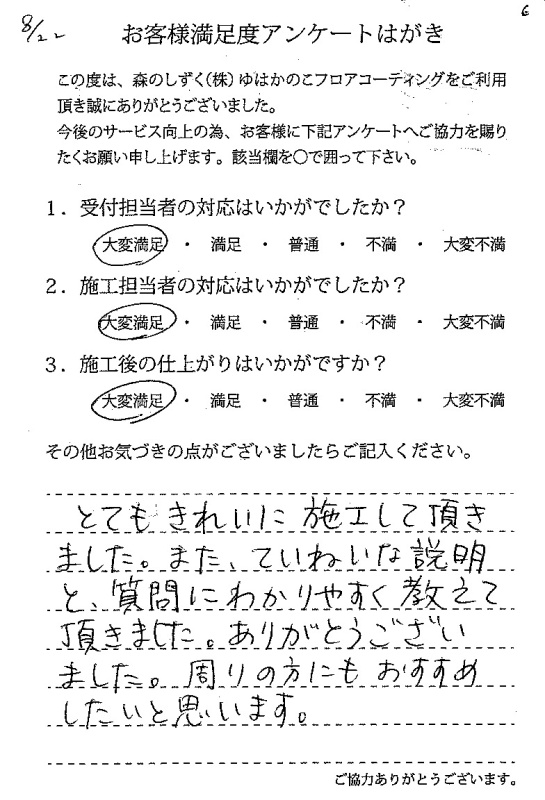 8/22
6
お客様満足度アンケートはがき
この度は、森のしずく(株)ゆはかのこフロアコーティングをご利用
頂き誠にありがとうございました。
今後のサービス向上の為、お客様に下記アンケートへご協力を賜り
たくお願い申し上げます。該当欄を〇で囲って下さい。
1．受付担当者の対応はいかがでしたか？
大変満足 ・ 満足 ・ 普通 ・ 不満 ・ 大変不満
2．施工担当者の対応はいかがでしたか？
大変満足 ・ 満足 ・ 普通 ・ 不満 ・ 大変不満
3．施工後の仕上がりはいかがですか？
大変満足 ・ 満足 ・ 普通 ・ 不満 ・ 大変不満
その他お気づきの点がございましたらご記入ください。
とてもきれいに施工して頂き
ました。また、ていねいな説明
と、質問にわかりやすく教えて
頂きました。ありがとうござい
ました。周りの方にもおすすめ
したいと思います。
ご協力ありがとうございます。